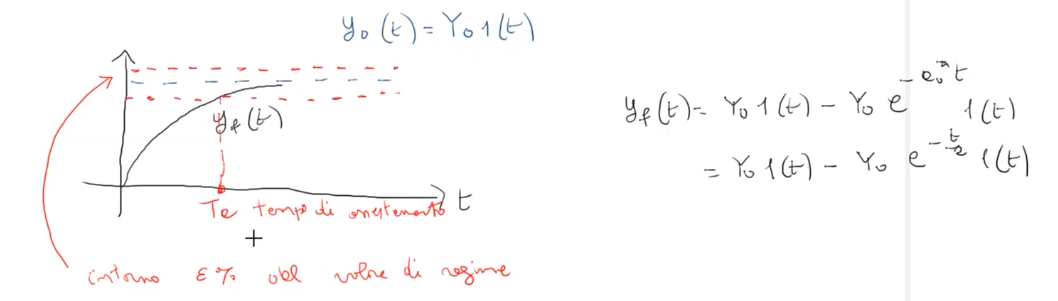 y₀(t) = Y₀ 1(t)
y_f(t)
t
Tε tempo di assestamento
intorno ε% del valore di regime
y_f(t) = Y₀ 1(t) - Y₀ e 1(t)
= Y₀ 1(t) - Y₀ e 1(t)